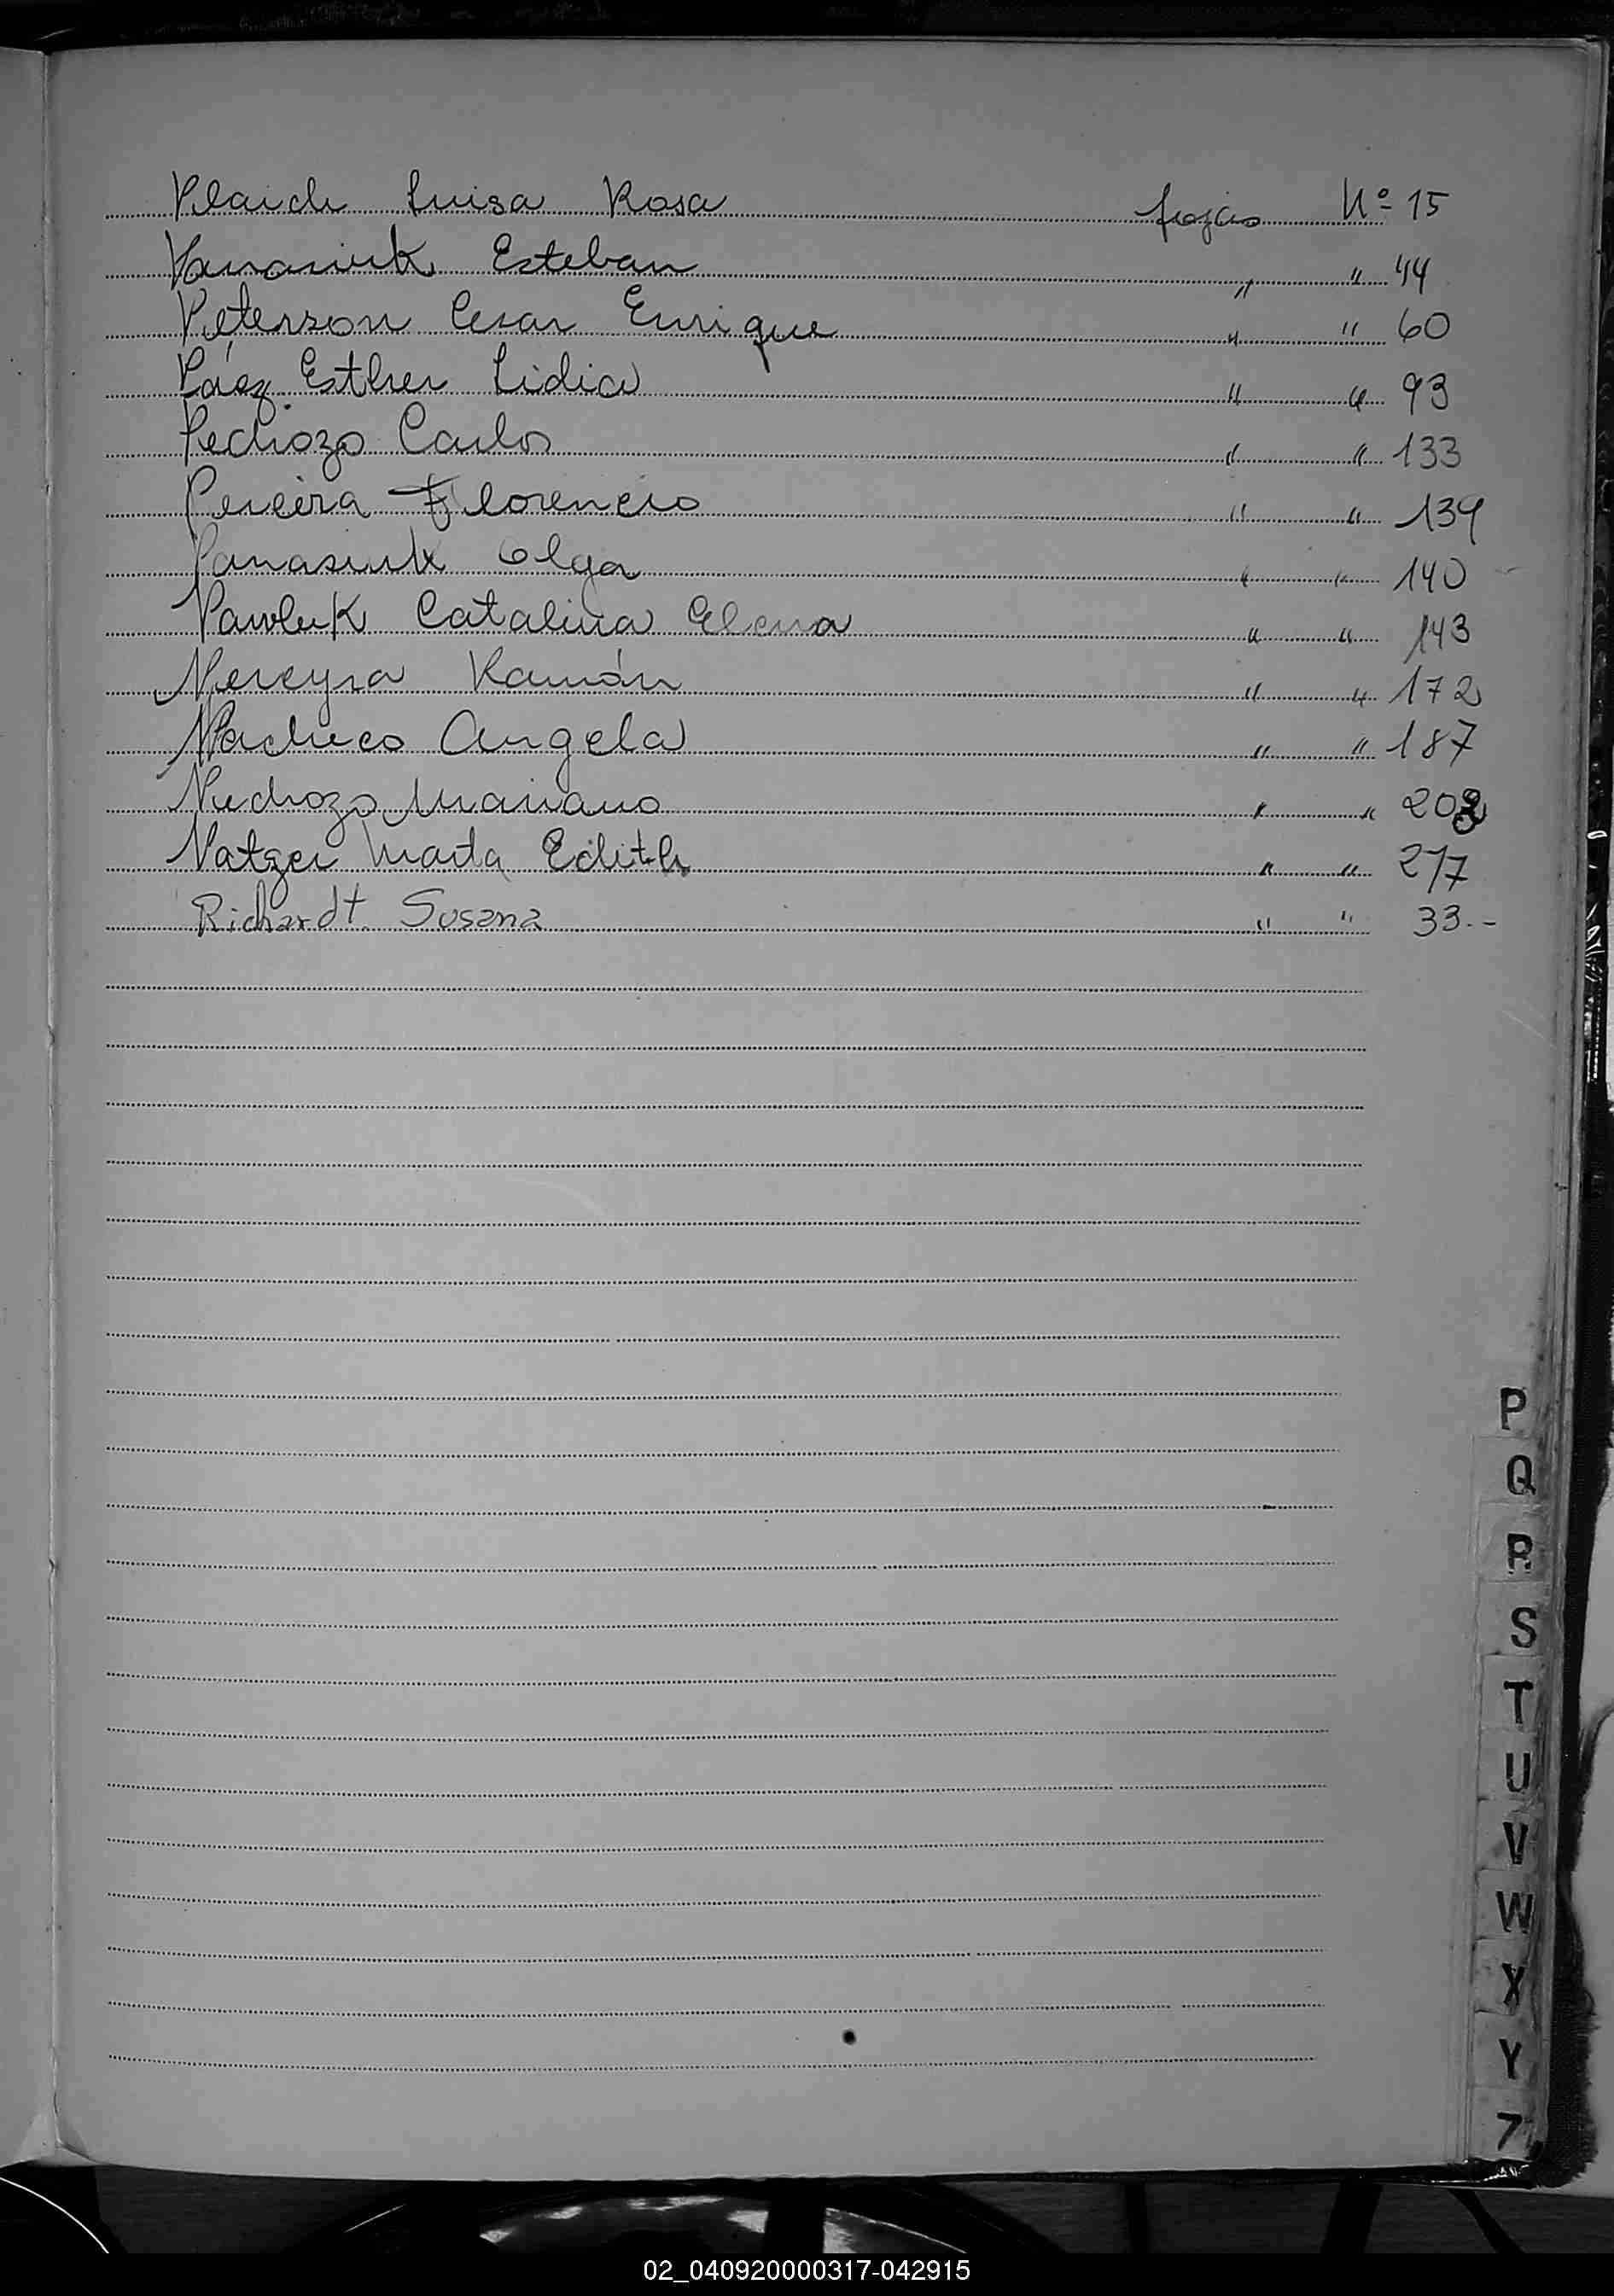 Plaich Luisa Rosa fojas Nº 15
Panasiuk Esteban " " 44
Peterson Cesar Enrique " " 60
Páez Esther Lidia " " 93
Pedrozo Carlos " " 133
Pereira Florencio " " 139
Panasiuk Olga " " 140
Pawluk Catalina Elena " " 143
Pereyra Ramón " " 172
Pacheco Angela " " 187
Pedrozo Mariano " "
Patzer Marta Edith " " 217
Richardt Susana " " 33.-
P
Q
R
S
T
U
V
W
X
Y
Z
02_040920000317-042915